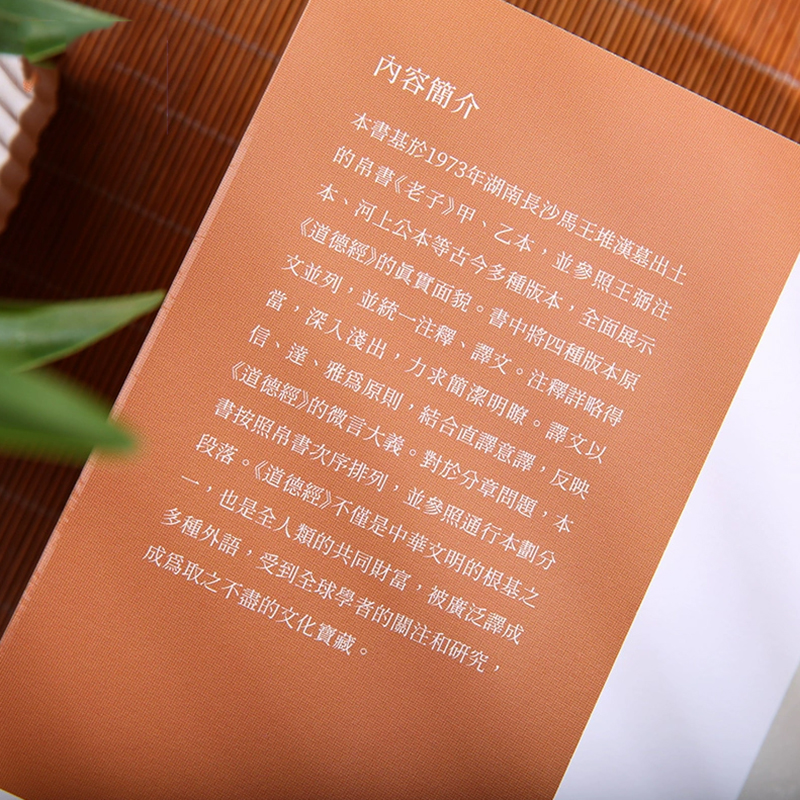 內容簡介
本書基於1973年湖南長沙馬王堆漢墓出土
的帛書《老子》甲、乙本，並參照王弼注
本、河上公本等古今多種版本，全面展示
《道德經》的眞實面貌。書中將四種版本原
文並列，並統一注釋、譯文。注釋詳略得
當，深入淺出，力求簡潔明瞭。譯文以
信、達、雅爲原則，結合直譯意譯，反映
《道德經》的微言大義。對於分章問題，本
書按照帛書次序排列，並參照通行本劃分
段落。《道德經》不僅是中華文明的根基之
一，也是全人類的共同財富，被廣泛譯成
多種外語，受到全球學者的關注和研究，
成爲取之不盡的文化寶藏。